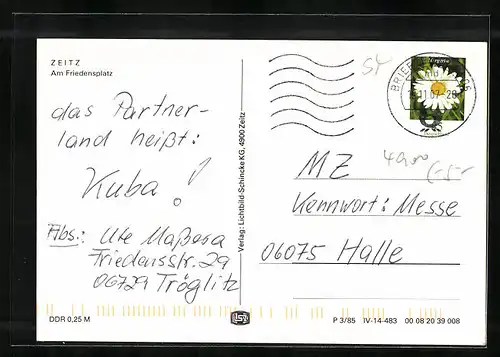 ZEITZ
Am Friedensplatz
das Partner-
land heißt:
Kuba!
Abs.: Ute Maßera
Friedensstr. 29
06729 Tröglitz
DDR 0,25 M
Verlag: Lichtbild-Schincke KG, 4900 Zeitz
BRIEF
MZ
Kennwort: Messe
06075 Halle
P 3/85 IV-14-483 00 08 20 39 008